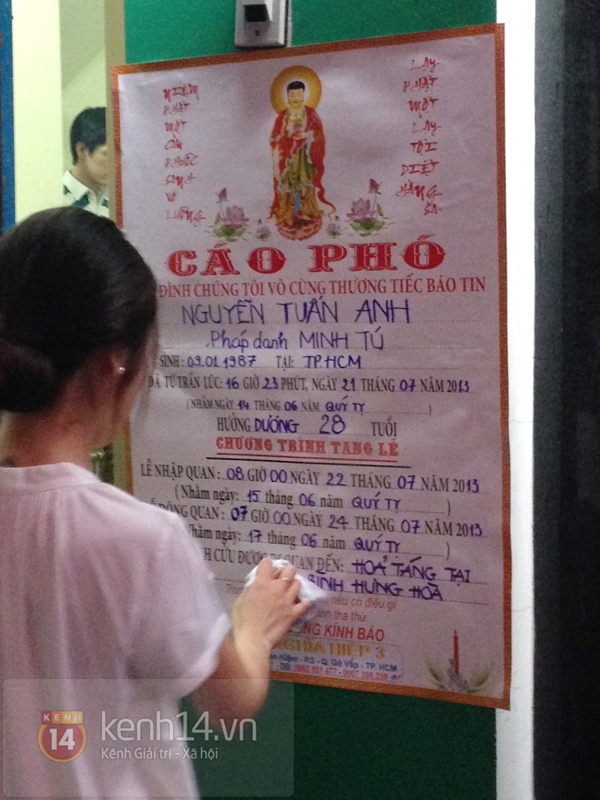 NIỆM
PHẬT
MỘT
CÂU
PHƯỚC
SANH
VÔ
LƯỢNG
LẠY
PHẬT
MỘT
LẠY
TỘI
DIỆT
HẰNG
SA
CÁO PHÓ
ĐÌNH CHÚNG TÔI VÔ CÙNG THƯƠNG TIẾC BÁO TIN
NGUYỄN TUẤN ANH
Pháp danh MINH TÚ
SINH: 09.01.1987 TẠI: TP.HCM
ĐÃ TỪ TRẦN LÚC: 16 GIỜ 23 PHÚT, NGÀY 21 THÁNG 07 NĂM 2013
(NHẰM NGÀY 14 THÁNG 06 NĂM QUÝ TỴ )
HƯỞNG DƯƠNG 28 TUỔI
CHƯƠNG TRÌNH TANG LỄ
LỄ NHẬP QUAN: 08 GIỜ 00 NGÀY 22 THÁNG 07 NĂM 2013
(Nhằm ngày: 15 tháng 06 năm QUÝ TỴ )
QUAN: 07 GIỜ 00 NGÀY 24 THÁNG 07 NĂM 2013
Nhằm ngày: 17 tháng 06 năm QUÝ TỴ )
CỬU ĐƯỢC QUAN ĐẾN: HOẢ TÁNG TẠI
BÌNH HƯNG HOÀ
nếu có điều gì
tha thứ
KÍNH BÁO
NGHĨA HIỆP 3
P.3 - Q. Gò Vấp - TP. HCM
KÊNH
14
kenh14.vn
Kênh Giải trí - Xã hội